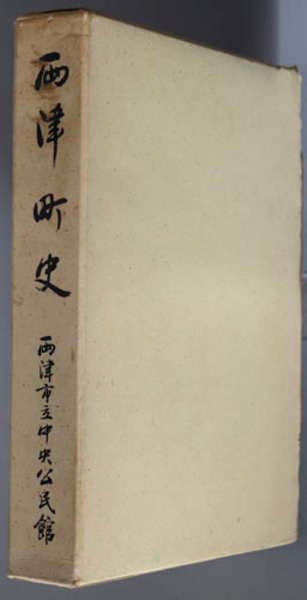 両津町史
両津市立中央公民館